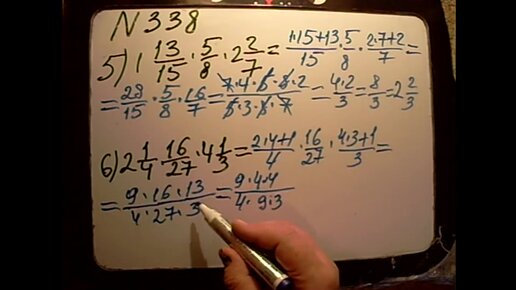 N338
5) 1 13/15 · 5/8 · 2 2/7 = (1·15+13)/15 · 5/8 · (2·7+2)/7 =
= 28/15 · 5/8 · 16/7 = (7·4·5·8·2)/(5·3·8·7) = (4·2)/3 = 8/3 = 2 2/3
6) 2 1/4 · 16/27 · 4 1/3 = (2·4+1)/4 · 16/27 · (4·3+1)/3 =
= (9·16·13)/(4·27·3) = (9·4·4)/(4·9·3)